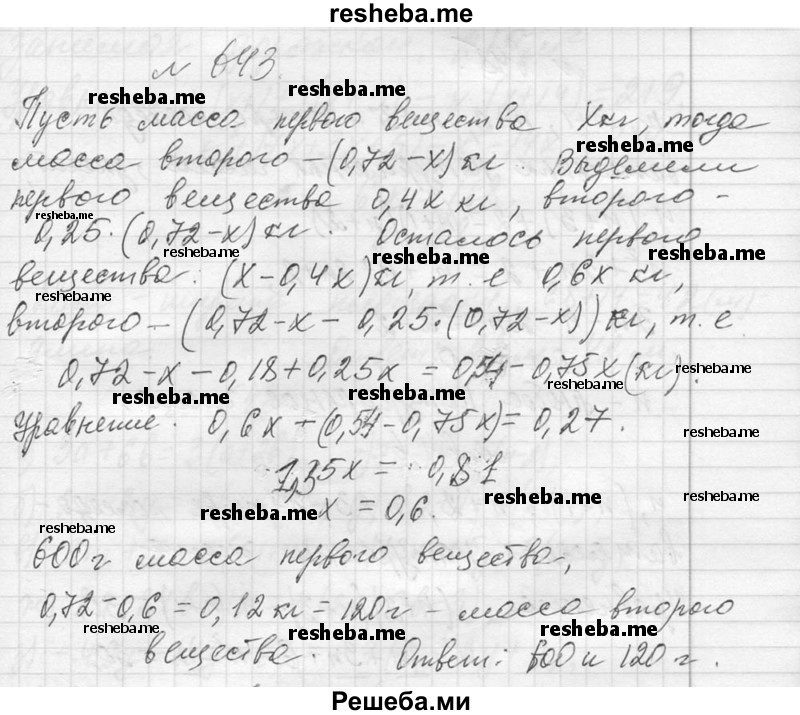 resheba.me
№ 643.
resheba.me resheba.me
Пусть масса первого вещества Xкг, тогда
resheba.me
масса второго – (0,72 – x) кг. Выделили
первого вещества 0,4x кг, второго –
resheba.me
0,25·(0,72 – x) кг. Осталось первого
resheba.me resheba.me resheba.me
вещества: (x – 0,4x) кг, т. е 0,6x кг,
resheba.me resheba.me
второго – (0,72 – x – 0,25·(0,72 – x)) кг, т. е
0,72 – x – 0,18 + 0,25x = 0,54 – 0,75x (кг).
resheba.me resheba.me resheba.me resheba.me
Уравнение. 0,6x + (0,54 – 0,75x) = 0,27.
resheba.me
1,35x = 0,81
resheba.me resheba.me
x = 0,6.
resheba.me resheba.me
600г масса первого вещества,
resheba.me
0,72 – 0,6 = 0,12 кг = 120 г – масса второго
resheba.me resheba.me resheba.me
вещества. Ответ: 600 и 120 г.
Решеба.ми